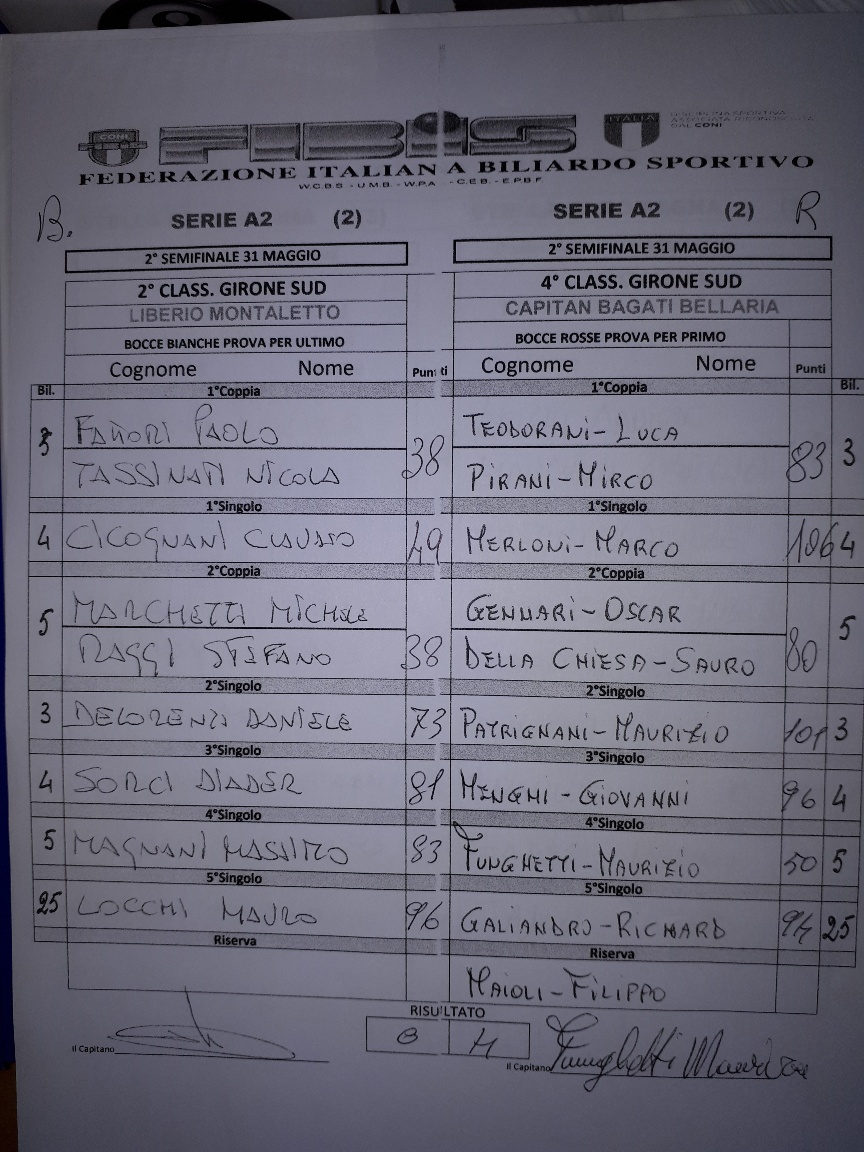 CONI
FIBiS
ITALIA
DISCIPLINA SPORTIVA
ASSOCIATA RICONOSCIUTA
DAL CONI
FEDERAZIONE ITALIANA BILIARDO SPORTIVO
W.C.B.S. - U.M.B. - W.P.A. - C.E.B. - E.P.B.F.
B. SERIE A2 (2) SERIE A2 (2) R
2° SEMIFINALE 31 MAGGIO 2° SEMIFINALE 31 MAGGIO
2° CLASS. GIRONE SUD 4° CLASS. GIRONE SUD
LIBERIO MONTALETTO CAPITAN BAGATI BELLARIA
BOCCE BIANCHE PROVA PER ULTIMO BOCCE ROSSE PROVA PER PRIMO
Cognome Nome Punti Cognome Nome Punti
Bil. 1°Coppia 1°Coppia Bil.
3 PAOLO 38 TEODORANI - LUCA 83 3
TASSINARI NICOLA PIRANI - MIRCO
1°Singolo 1°Singolo
4 CICOGNANI CLAUDIO 49 MERLONI - MARCO 106 4
2°Coppia 2°Coppia
5 MARCHETTI MICHELE 38 GENNARI - OSCAR 80 5
RAGGI STEFANO DELLA CHIESA - SAURO
2°Singolo 2°Singolo
3 DELORENZI DANIELE 73 PATRIGNANI - MAURIZIO 101 3
3°Singolo 3°Singolo
4 SORCI DIADER 81 MENGHI - GIOVANNI 96 4
4°Singolo 4°Singolo
5 MAGNANI MASSIMO 83 FUNGHETTI - MAURIZIO 50 5
5°Singolo 5°Singolo
25 LOCCHI MAURO 96 GALIANDRO - RICHARD 94 25
Riserva Riserva
MAIOLI - FILIPPO
RISULTATO
Il Capitano Il Capitano Funghetti Maurizio